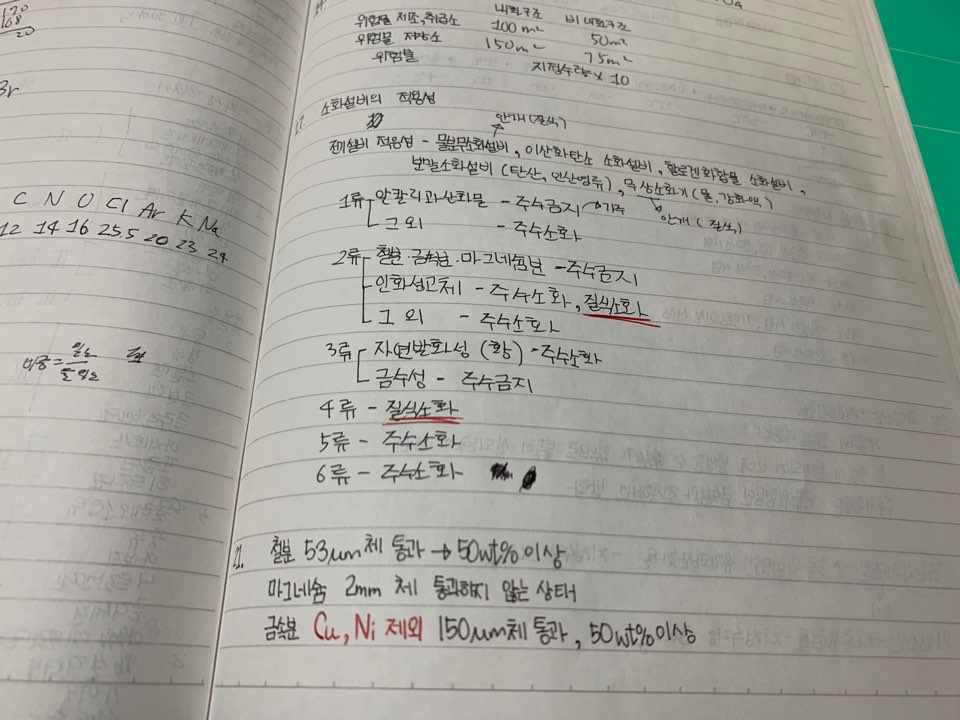 170
168
20
3r
C N O Cl Ar K Na
12 14 16 25.5 20 23 24
비중 =
내화구조 비내화구조
위험물 제조, 취급소 100m² 50m²
위험물 저장소 150m² 75m²
위험물 지정수량 × 10
소화설비의 적응성
안개(질식)
전기설비 적응성 - 물분무소화설비, 이산화탄소 소화설비, 할로겐화합물 소화설비,
분말소화설비 (탄산, 인산염류), 무상소화기(물, 강화액)
1류 알칼리과산화물 - 주수금지 안개(질식)
그 외 - 주수소화
2류 철분·금속분·마그네슘분 - 주수금지
인화성고체 - 주수소화, 질식소화
그 외 - 주수소화
3류 자연발화성 (황) - 주수소화
금수성 - 주수금지
4류 - 질식소화
5류 - 주수소화
6류 - 주수소화
21. 철분 53μm체 통과 → 50wt% 이상
마그네슘 2mm 체 통과하지 않는 상태
금속분 Cu, Ni 제외 150μm체 통과, 50wt% 이상